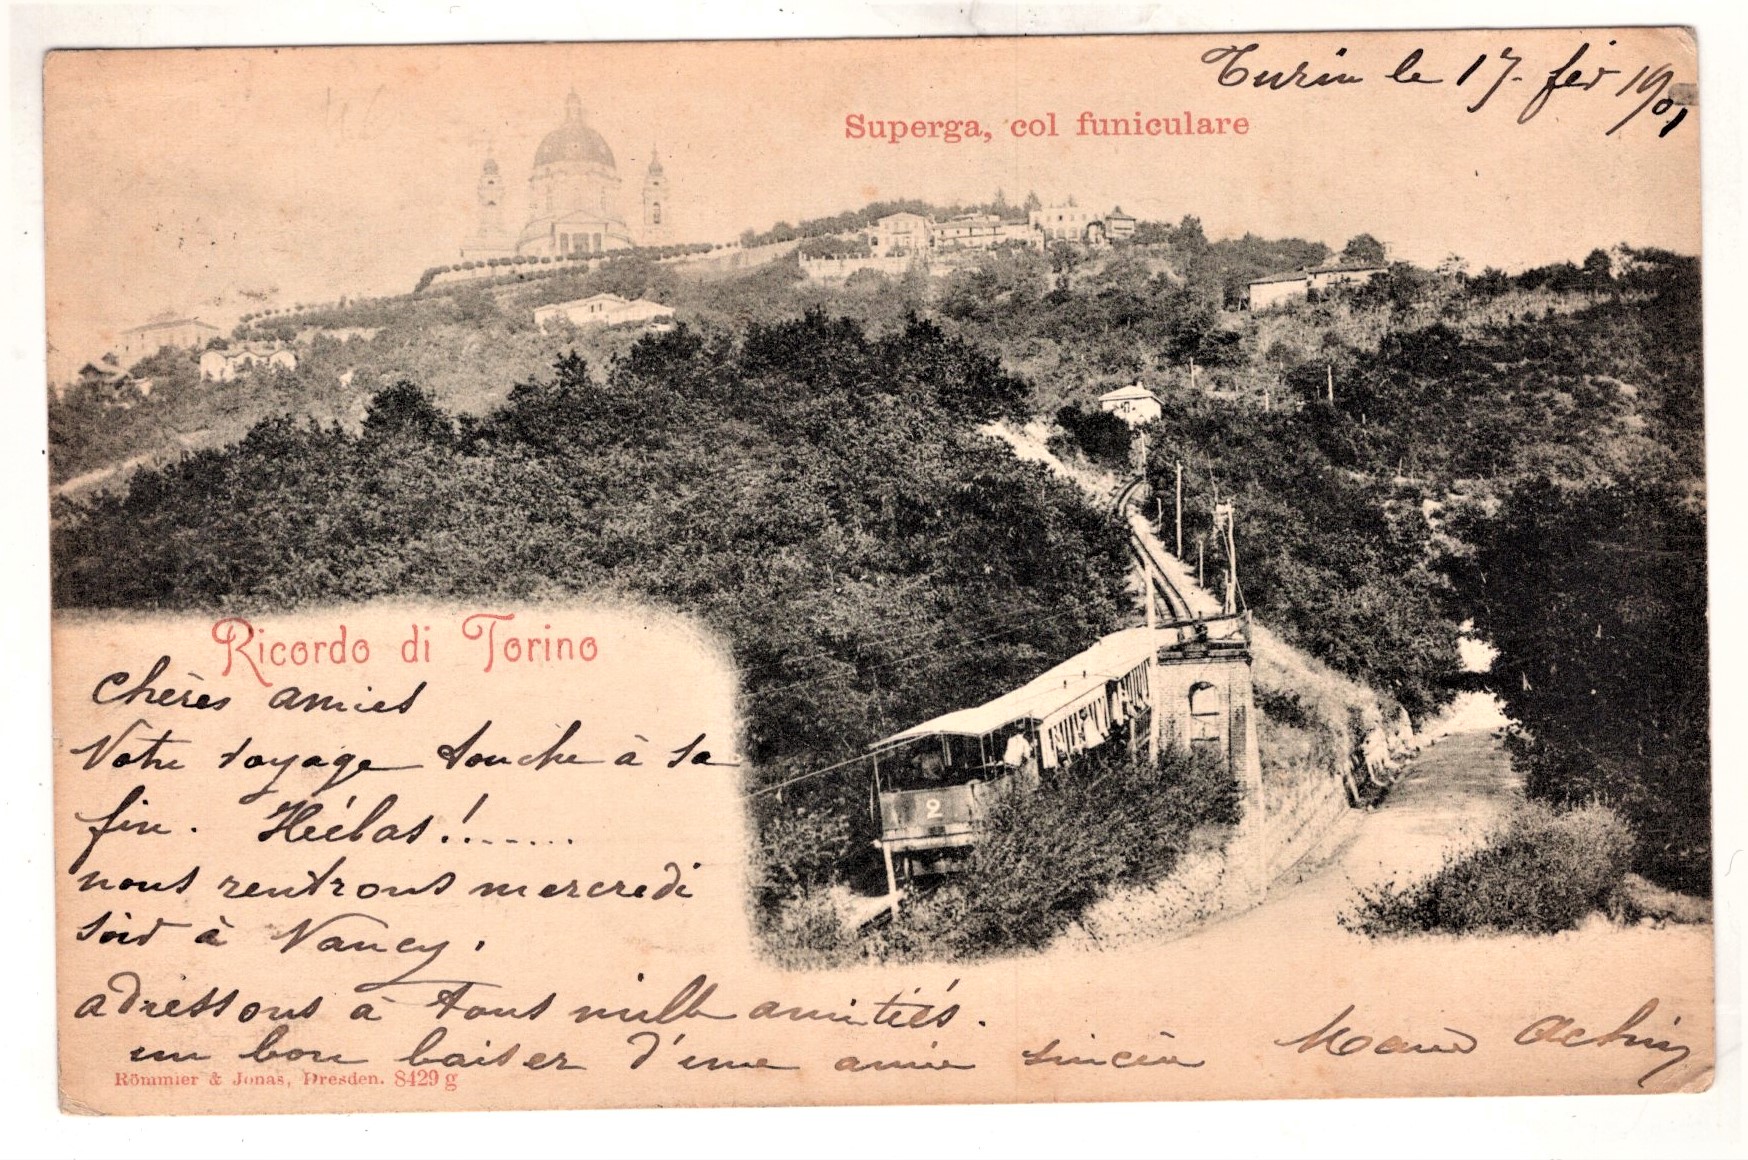 Turin le 17. fév 1901
Superga, col funiculare
Ricordo di Torino
chères amies
Votre voyage touche à sa
fin. Héélas!.......
nous rentrons mercredi
soir à Nancy.
adressons à tous mille amitiés.
un bon baiser d'une amie sincère
Römmler & Jonas, Dresden. 8429 g